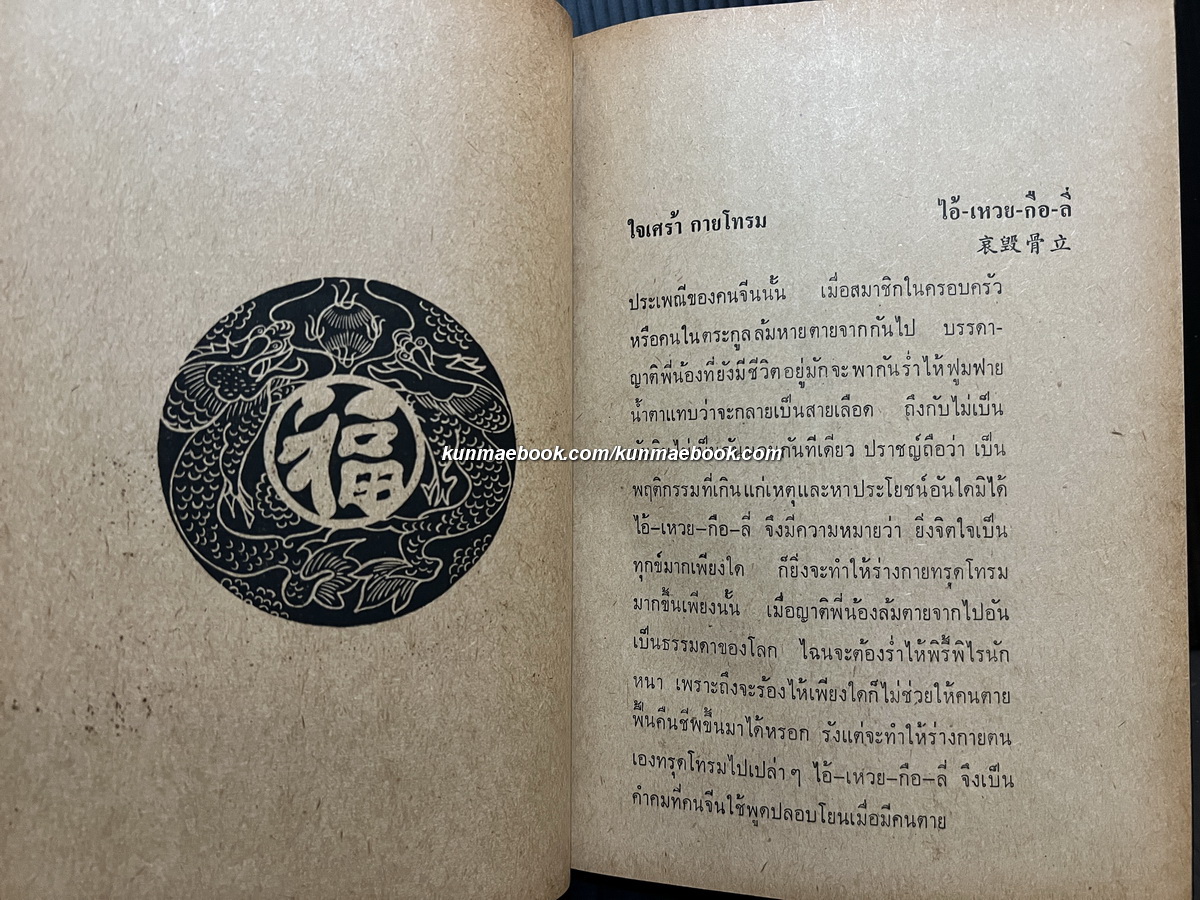 福
ใจเศร้า กายโทรม
ไอ้-เหวย-กือ-ลี่
哀毀骨立
ประเพณีของคนจีนนั้น เมื่อสมาชิกในครอบครัว
หรือคนในตระกูลล้มหายตายจากกันไป บรรดา-
ญาติพี่น้องที่ยังมีชีวิตอยู่มักจะพากันร่ำไห้ฟูมฟาย
น้ำตาแทบว่าจะกลายเป็นสายเลือด ถึงกับไม่เป็น
กันทีเดียว ปราชญ์ถือว่า เป็น
kunmaebook.com/kunmaebook.com
พฤติกรรมที่เกินแก่เหตุและหาประโยชน์อันใดมิได้
ไอ้–เหวย–กือ–ลี่ จึงมีความหมายว่า ยิ่งจิตใจเป็น
ทุกข์มากเพียงใด ก็ยิ่งจะทำให้ร่างกายทรุดโทรม
มากขึ้นเพียงนั้น เมื่อญาติพี่น้องล้มตายจากไปอัน
เป็นธรรมดาของโลก ไฉนจะต้องร่ำไห้พิรี้พิไรนัก
หนา เพราะถึงจะร้องไห้เพียงใดก็ไม่ช่วยให้คนตาย
ฟื้นคืนชีพขึ้นมาได้หรอก รังแต่จะทำให้ร่างกายตน
เองทรุดโทรมไปเปล่า ๆ ไอ้–เหวย–กือ–ลี่ จึงเป็น
คำคมที่คนจีนใช้พูดปลอบโยนเมื่อมีคนตาย